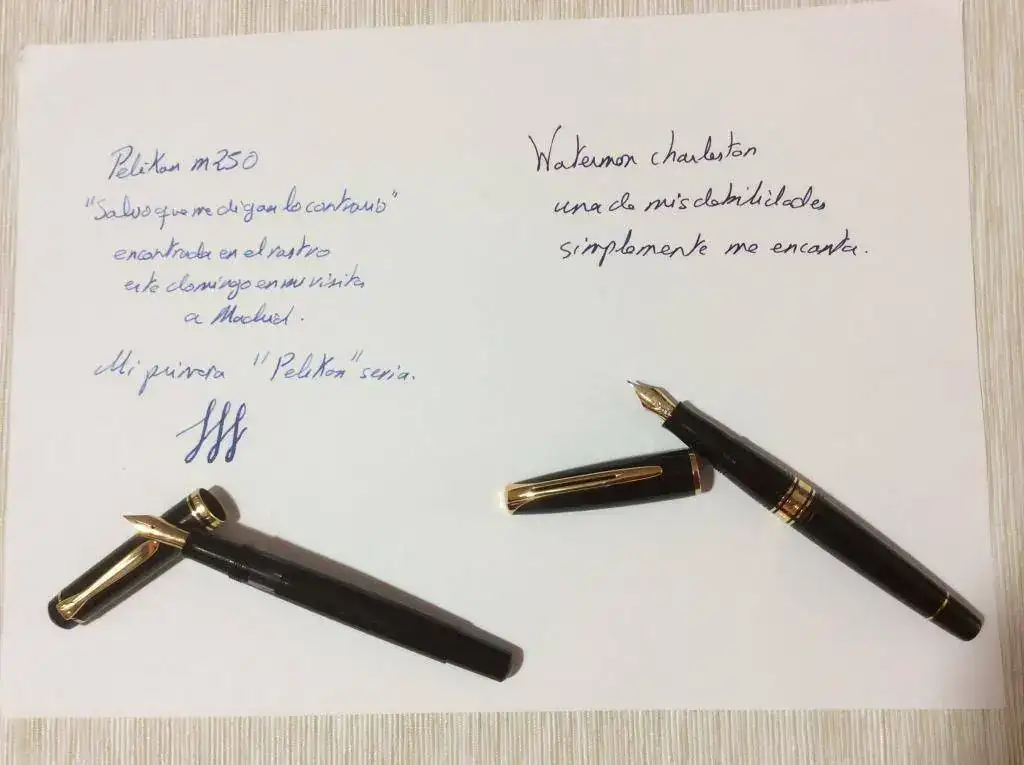 Pelikan m250
"Salvo que me digan lo contrario"
encontrada en el rastro
este domingo en mi visita
a Madrid.
Mi primera "Pelikan" seria.
Waterman charleston
una de mis debilidades
simplemente me encanta.